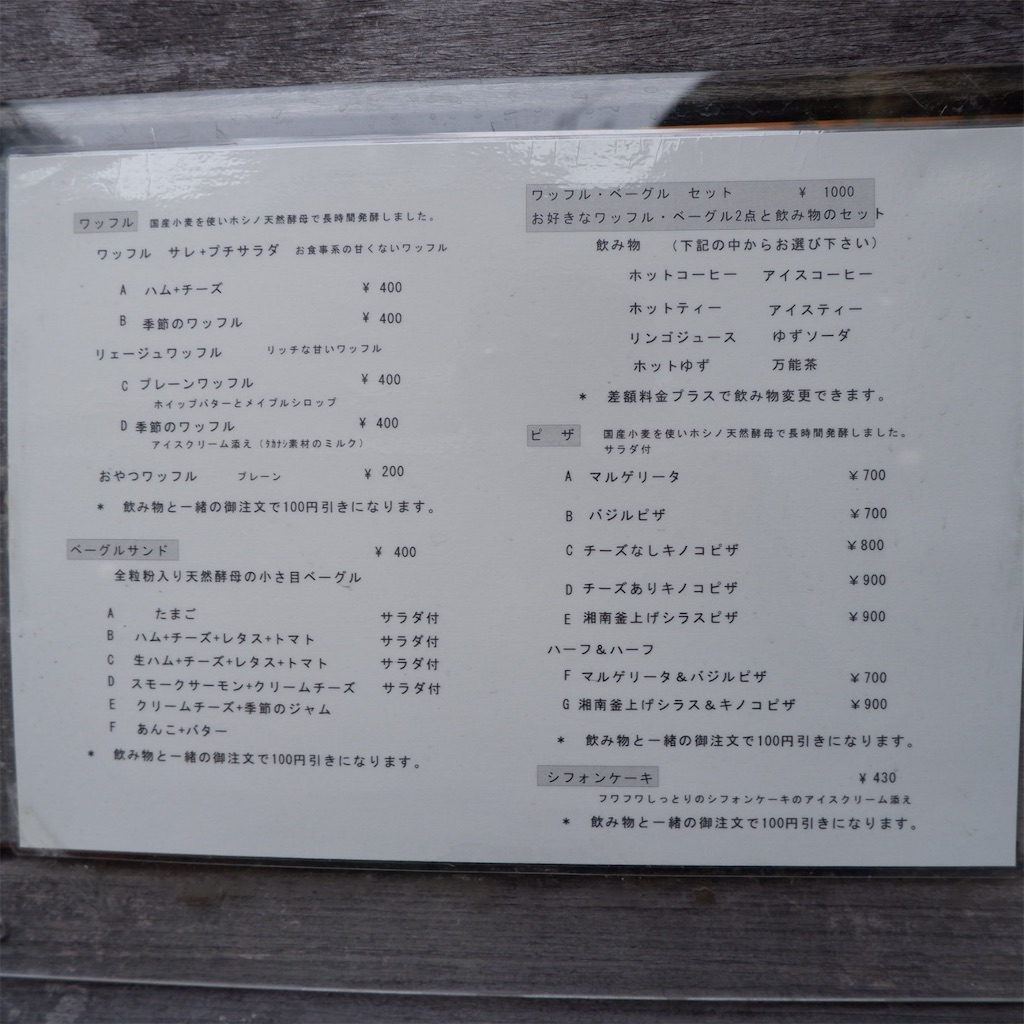 ワッフル 国産小麦を使いホシノ天然酵母で長時間発酵しました。
ワッフル サレ+プチサラダ お食事系の甘くないワッフル
A ハム+チーズ ¥ 400
B 季節のワッフル ¥ 400
リェージュワッフル リッチな甘いワッフル
C プレーンワッフル ¥ 400
ホイップバターとメイプルシロップ
D 季節のワッフル ¥ 400
アイスクリーム添え(タカナシ素材のミルク)
おやつワッフル プレーン ¥ 200
* 飲み物と一緒の御注文で100円引きになります。
ベーグルサンド ¥ 400
全粒粉入り天然酵母の小さ目ベーグル
A たまご サラダ付
B ハム+チーズ+レタス+トマト サラダ付
C 生ハム+チーズ+レタス+トマト サラダ付
D スモークサーモン+クリームチーズ サラダ付
E クリームチーズ+季節のジャム
F あんこ+バター
* 飲み物と一緒の御注文で100円引きになります。
ワッフル・ベーグル セット ¥ 1000
お好きなワッフル・ベーグル2点と飲み物のセット
飲み物 (下記の中からお選び下さい)
ホットコーヒー アイスコーヒー
ホットティー アイスティー
リンゴジュース ゆずソーダ
ホットゆず 万能茶
* 差額料金プラスで飲み物変更できます。
ピ ザ 国産小麦を使いホシノ天然酵母で長時間発酵しました。
サラダ付
A マルゲリータ ¥700
B バジルピザ ¥700
C チーズなしキノコピザ ¥800
D チーズありキノコピザ ¥900
E 湘南釜上げシラスピザ ¥900
ハーフ&ハーフ
F マルゲリータ&バジルピザ ¥700
G 湘南釜上げシラス&キノコピザ ¥900
* 飲み物と一緒の御注文で100円引きになります。
シフォンケーキ ¥ 430
フワフワしっとりのシフォンケーキのアイスクリーム添え
* 飲み物と一緒の御注文で100円引きになります。